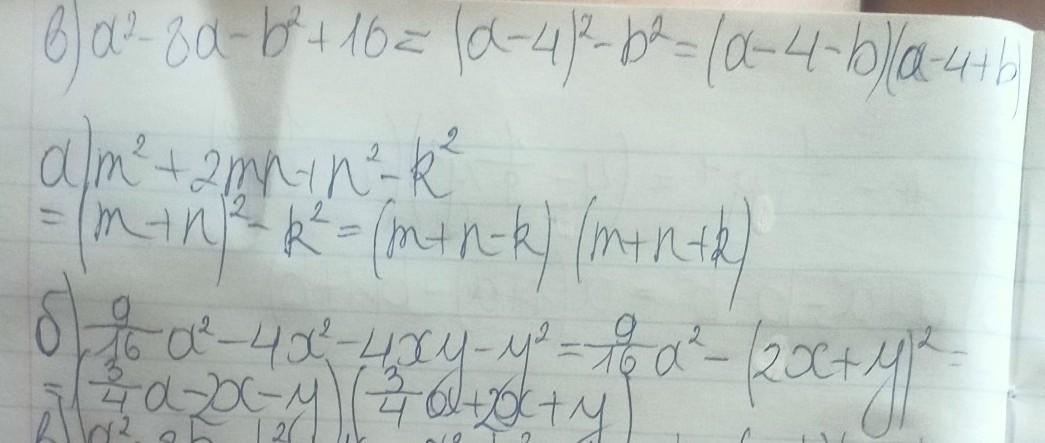 в) a² - 8a - b² + 16 = (a-4)² - b² = (a-4-b)(a-4+b)
a) m² + 2mn + n² - k²
= (m+n)² - k² = (m+n-k) (m+n+k)
б) 9/16 a² - 4x² - 4xy - y² = 9/16 a² - (2x+y)² =
= (3/4 a - 2x - y) (3/4 a + 2x + y)